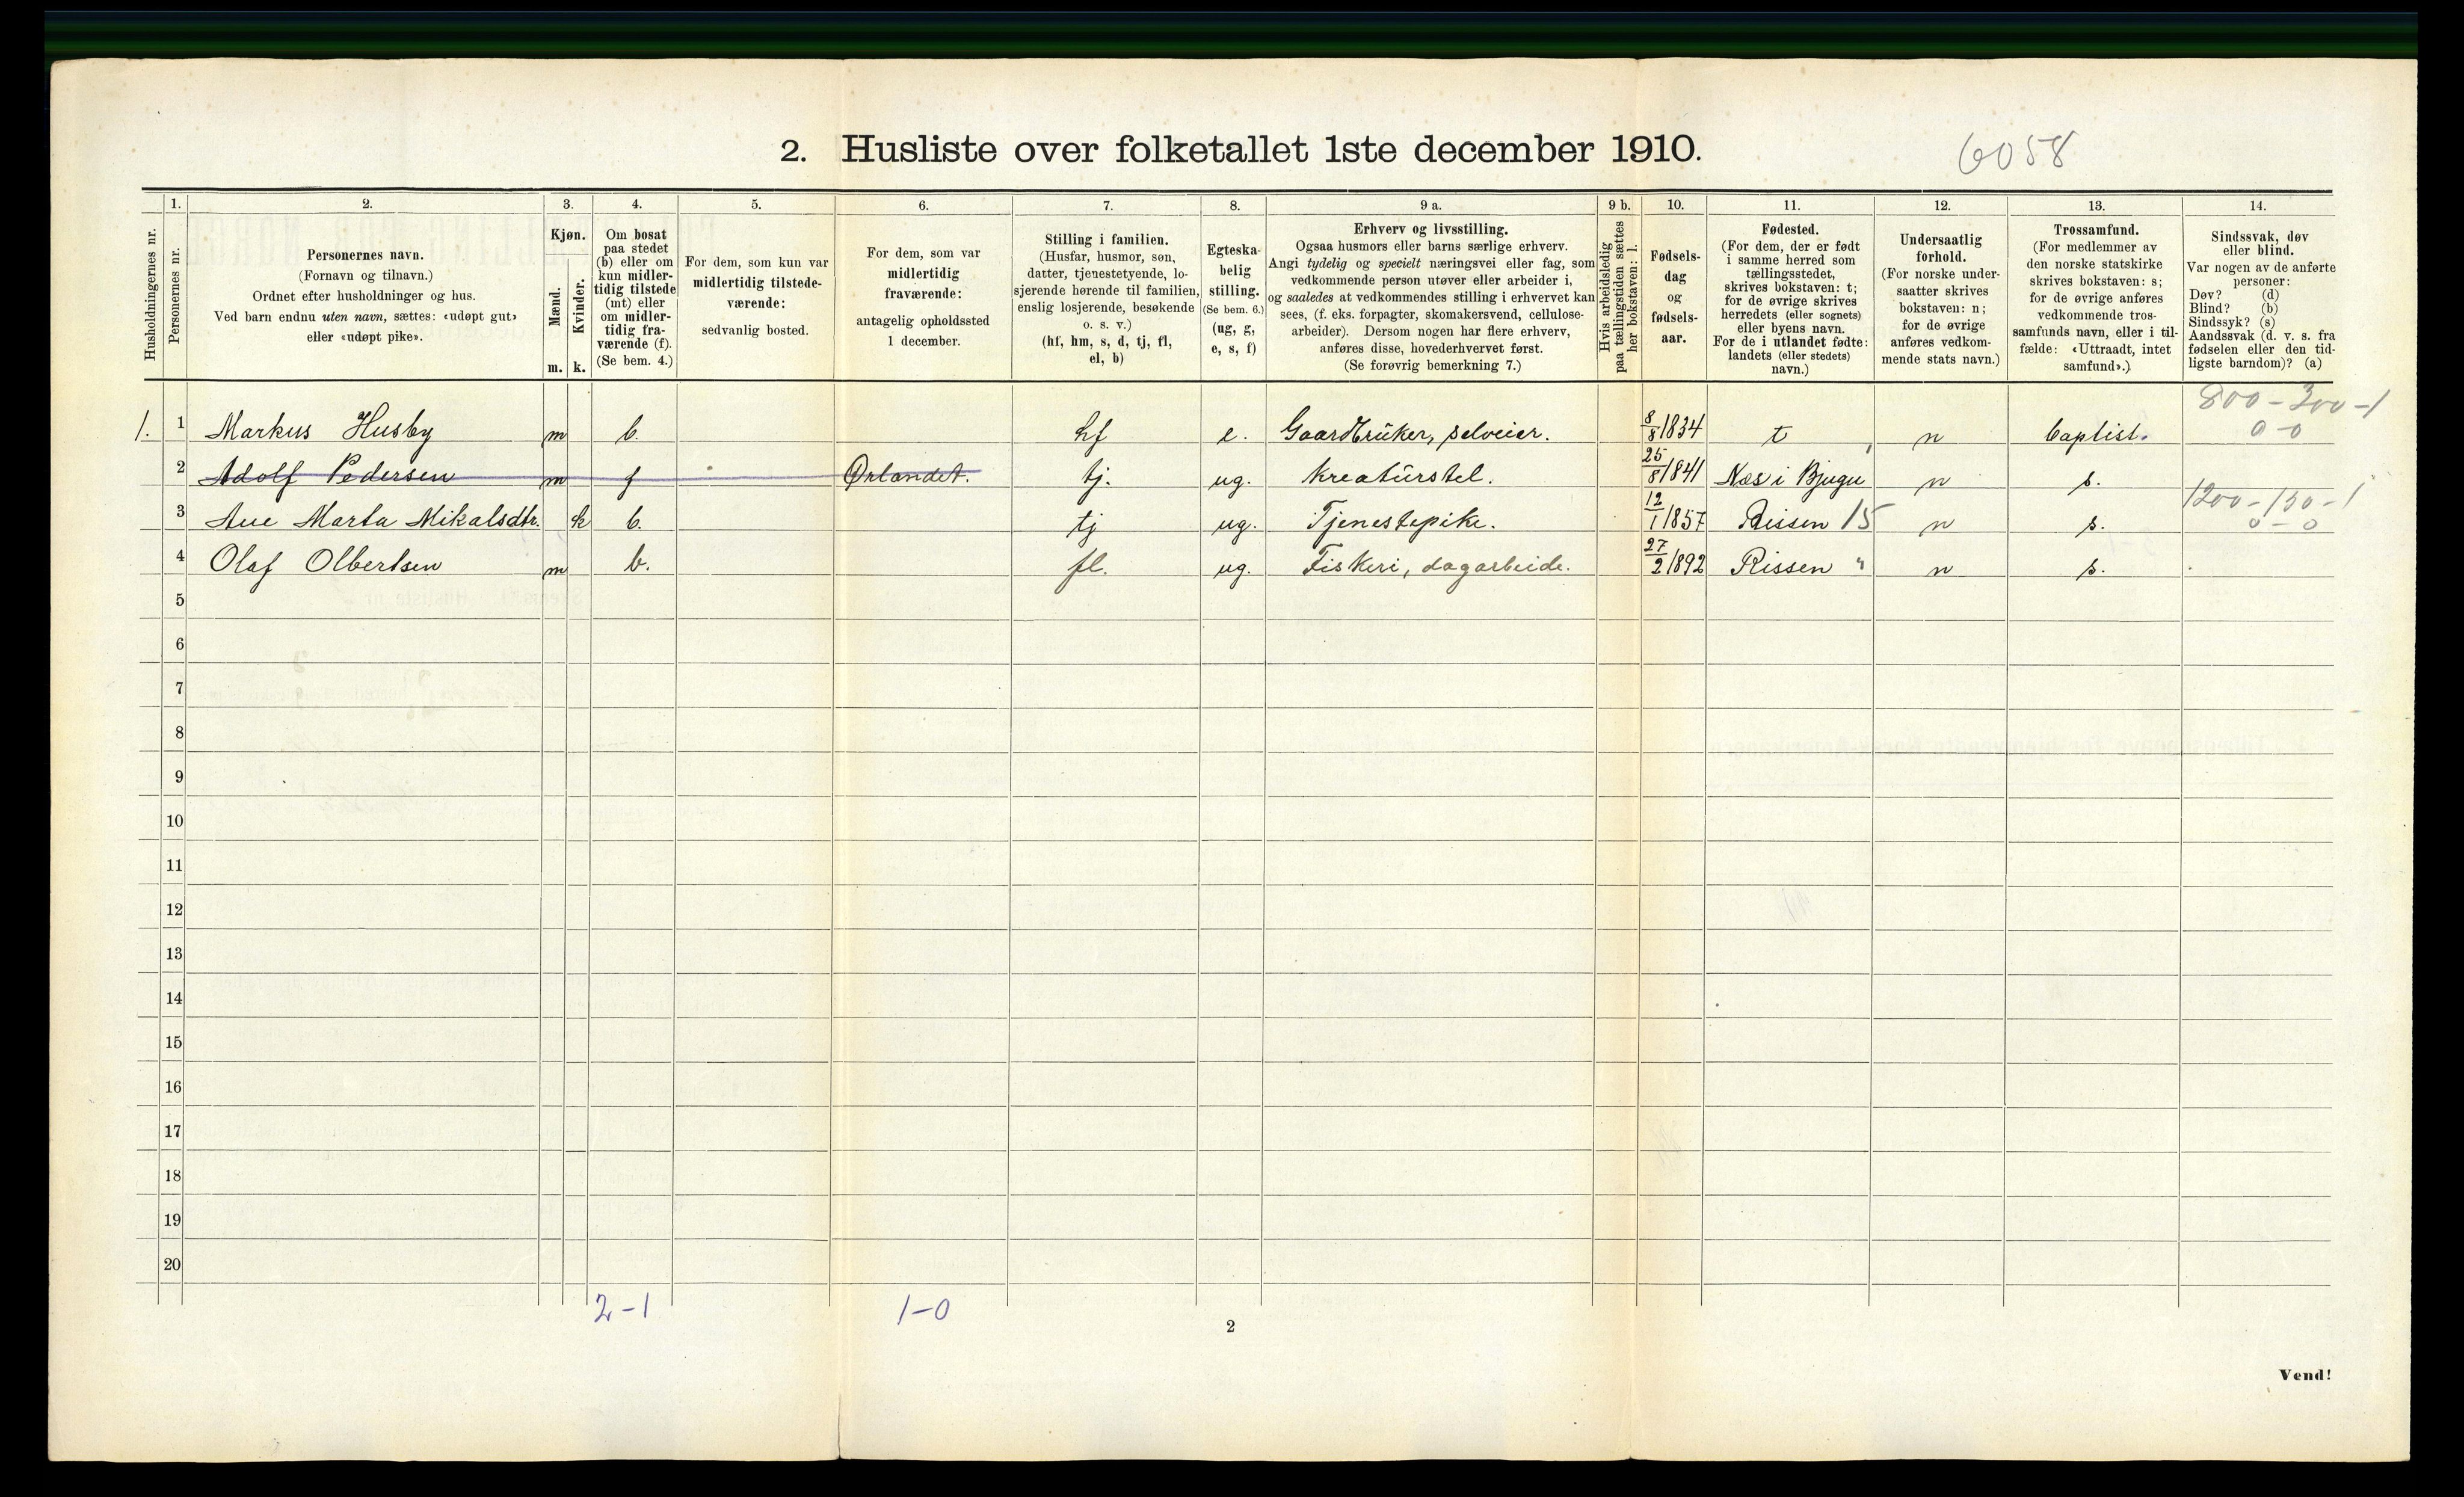 2. Husliste over folketallet 1ste december 1910.
6058
1. 2. 3. 4. 5. 6. 7. 8. 9 a. 9 b. 10. 11. 12. 13. 14.
Husholdningernes nr.
Personernes nr.
Personernes navn.
(Fornavn og tilnavn.)
Ordnet efter husholdninger og hus.
Ved barn endnu uten navn, sættes: «udøpt gut»
eller «udøpt pike».
Kjøn.
Mænd.
Kvinder.
m. k.
Om bosat
paa stedet
(b) eller om
kun midler-
tidig tilstede
(mt) eller
om midler-
tidig fra-
værende (f).
(Se bem. 4.)
For dem, som kun var
midlertidig tilstede-
værende:
sedvanlig bosted.
For dem, som var
midlertidig
fraværende:
antagelig opholdssted
1 december.
Stilling i familien.
(Husfar, husmor, søn,
datter, tjenestetyende, lo-
sjerende hørende til familien,
enslig losjerende, besøkende
o. s. v.)
(hf, hm, s, d, tj, fl,
el, b)
Egteska-
belig
stilling.
(Se bem. 6.)
(ug, g,
e, s, f)
Erhverv og livsstilling.
Ogsaa husmors eller barns særlige erhverv.
Angi tydelig og specielt næringsvei eller fag, som
vedkommende person utøver eller arbeider i,
og saaledes at vedkommendes stilling i erhvervet kan
sees, (f. eks. forpagter, skomakersvend, cellulose-
arbeider). Dersom nogen har flere erhverv,
anføres disse, hovederhvervet først.
(Se forøvrig bemerkning 7.)
Hvis arbeidsledig
paa tællingstiden sættes
her bokstaven: l.
Fødsels-
dag
og
fødsels-
aar.
Fødested.
(For dem, der er født
i samme herred som
tællingsstedet,
skrives bokstaven: t;
for de øvrige skrives
herredets (eller sognets)
eller byens navn.
For de i utlandet fødte:
landets (eller stedets)
navn.)
Undersaatlig
forhold.
(For norske under-
saatter skrives
bokstaven: n;
for de øvrige
anføres vedkom-
mende stats navn.)
Trossamfund.
(For medlemmer av
den norske statskirke
skrives bokstaven: s;
for de øvrige anføres
vedkommende tros-
samfunds navn, eller i til-
fælde: «Uttraadt, intet
samfund».)
Sindssvak, døv
eller blind.
Var nogen av de anførte
personer:
Døv? (d)
Blind? (b)
Sindssyk? (s)
Aandssvak (d. v. s. fra
fødselen eller den tid-
ligste barndom)? (a)
800 – 300 – 1
1. 1 Markus Husby m b. hf e. Gaardbruker, selveier. 8/8 1834 t n baptist. 0 – 0
2 Adolf Pedersen m f Ørlandet. tj. ug. Kreaturstel. 25/8 1841 Næs i Bjugn n s.
1200 – 150 – 1
3 Ane Marta Mikalsdtr. k b. tj ug. Tjenestepike. 12/1 1857 Rissen 15 n s. 0 – 0
4 Olaf Olbertsen m b. fl. ug. Fiskeri, dagarbeide. 27/2 1892 Rissen " n s.
5
6
7
8
9
10
11
12
13
14
15
16
17
18
19
20
2 – 1 1 – 0
2
Vend!